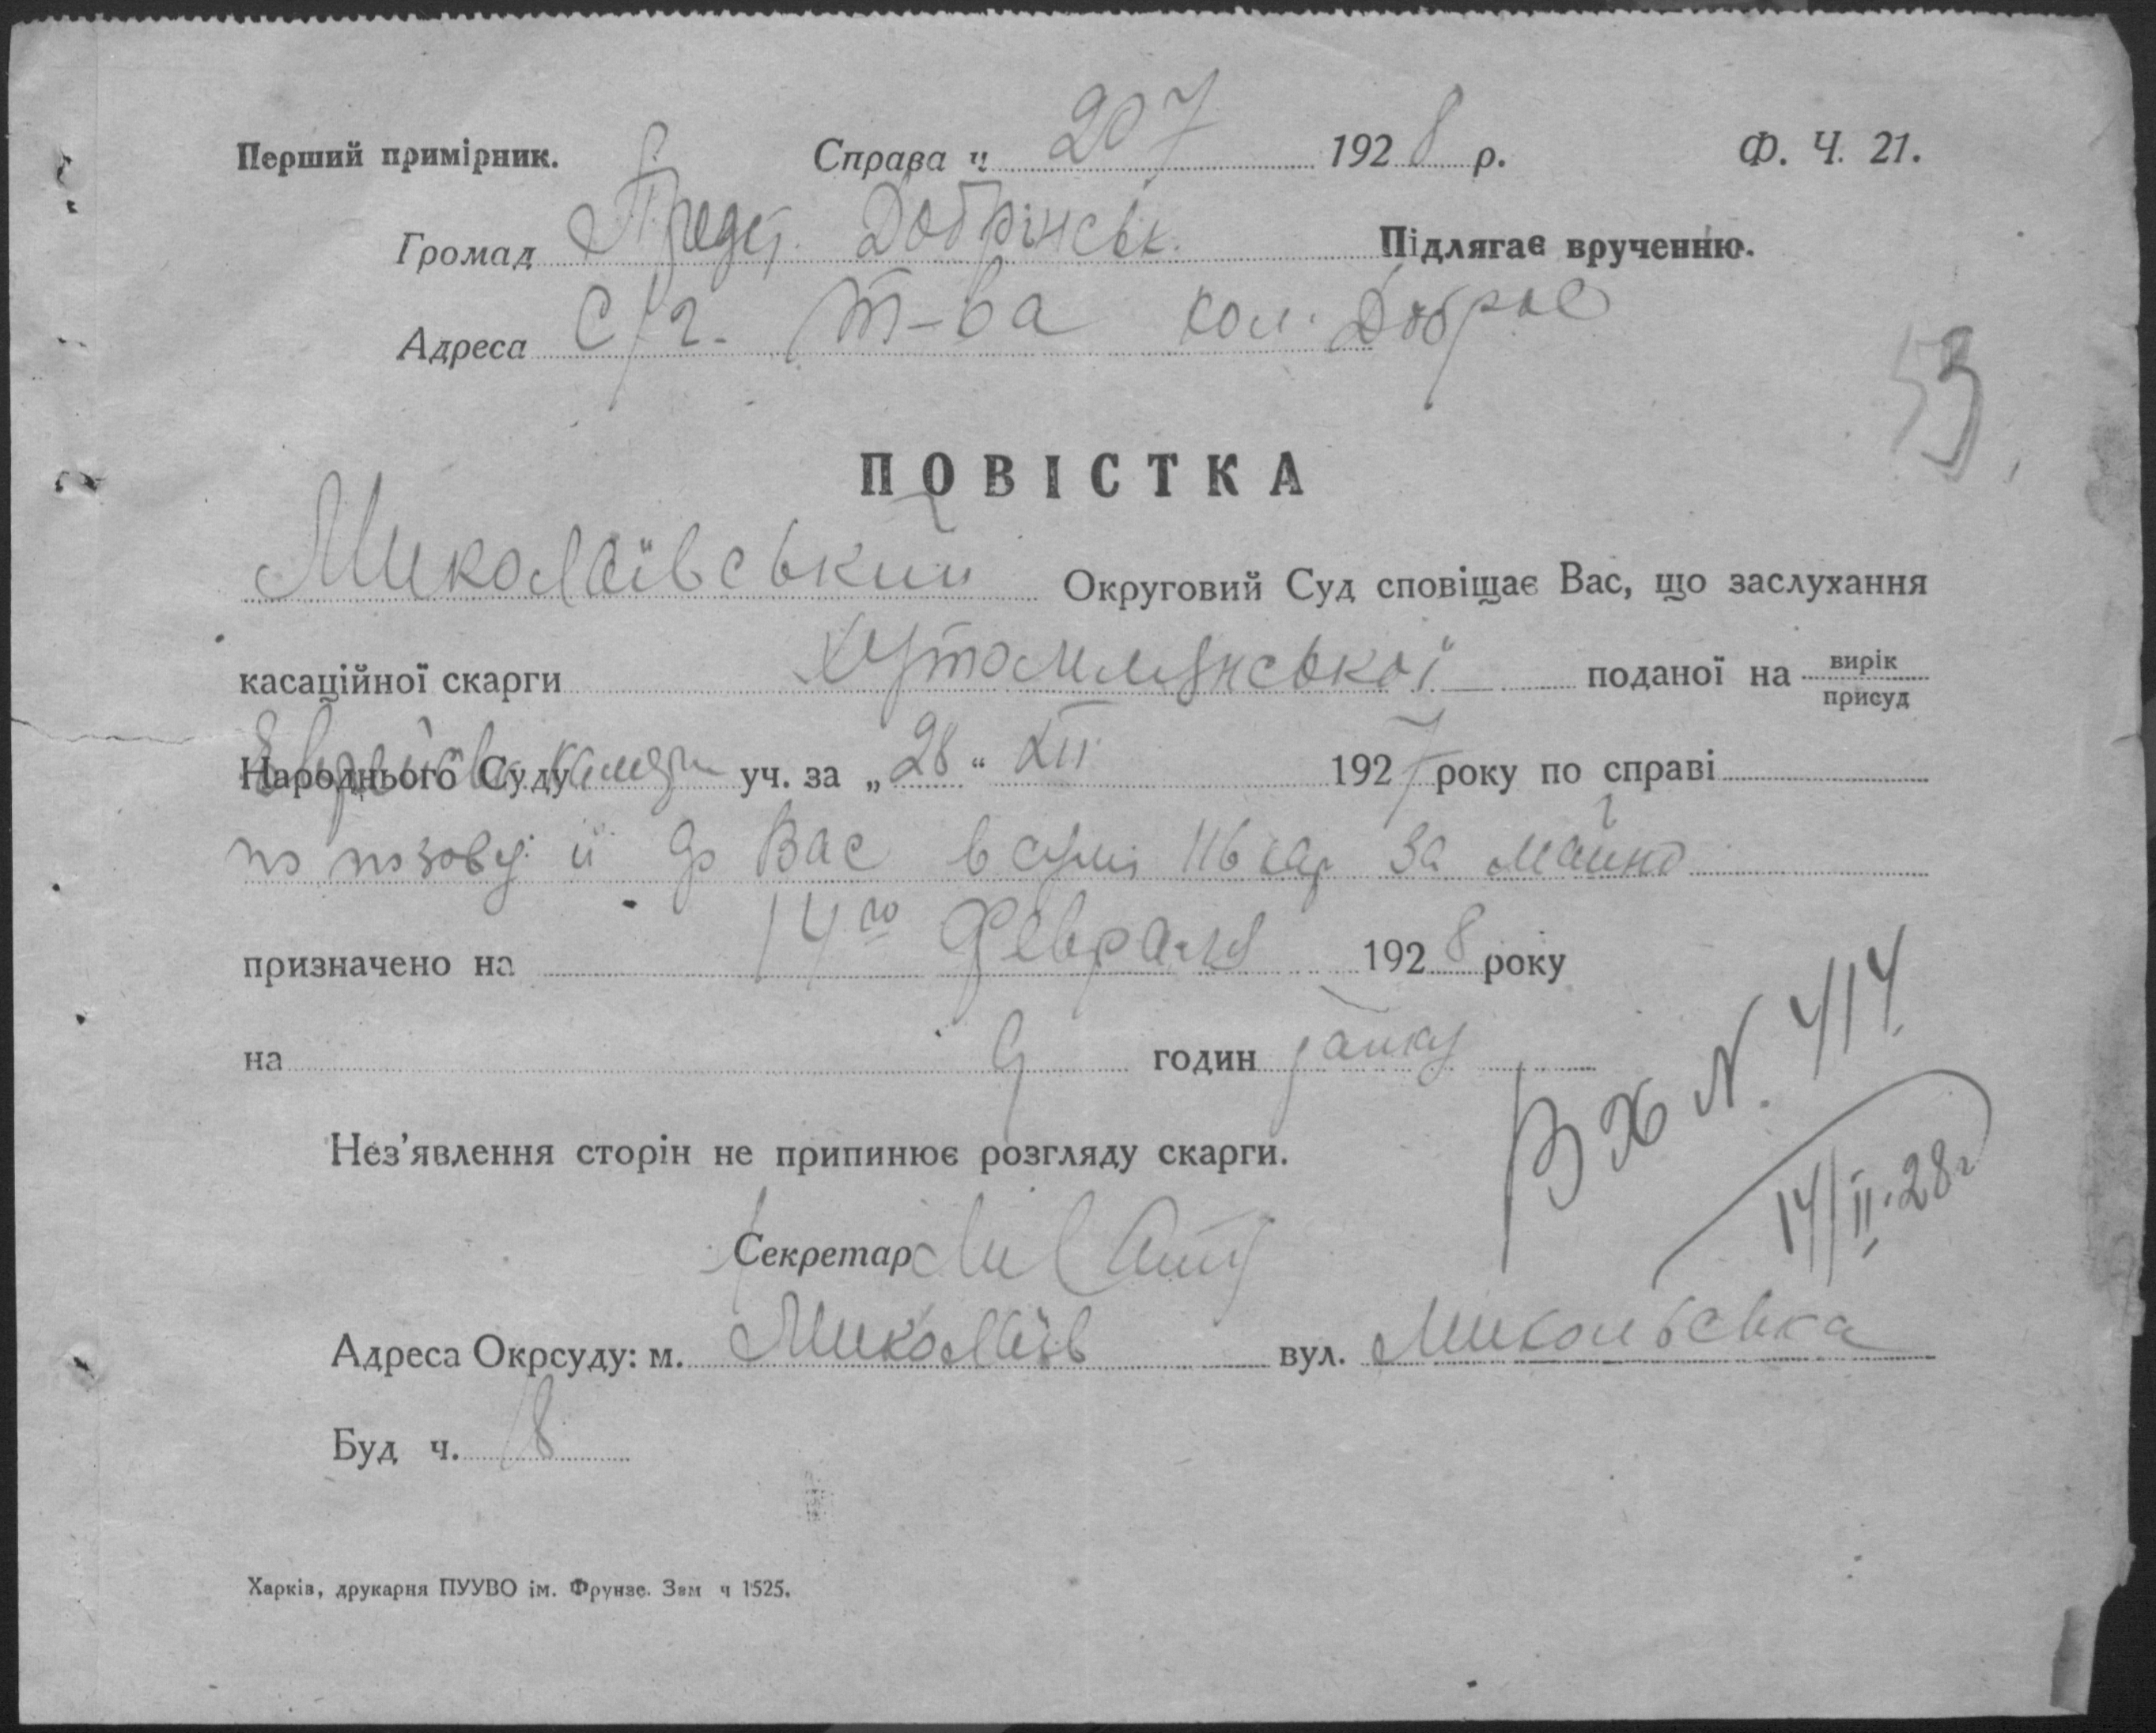 Перший примірник. Справа ч. 207 1928 р. Ф. Ч. 21.
Громад Предст. Добрінськ. Підлягає врученню.
Адреса С/г. т-ва кол. Доброе
53
ПОВІСТКА
Миколаївський Округовий Суд сповіщає Вас, що заслухання
касаційної скарги Хутомлянської поданої на вирік
присуд
Народнього Суду уч. за „28“ XII 1927 року по справі
по позову її до Вас в сумі 116 кар за майно
призначено на 14го Февраля 1928 року
на 9 годин ранку
Вх N. 414
14/II.28г
Нез’явлення сторін не припинює розгляду скарги.
Секретар
Адреса Окрсуду: м. Миколаїв вул. Микольська
Буд ч. 18
Харків, друкарня ПУУВО ім. Фрунзе. Зам ч 1525.